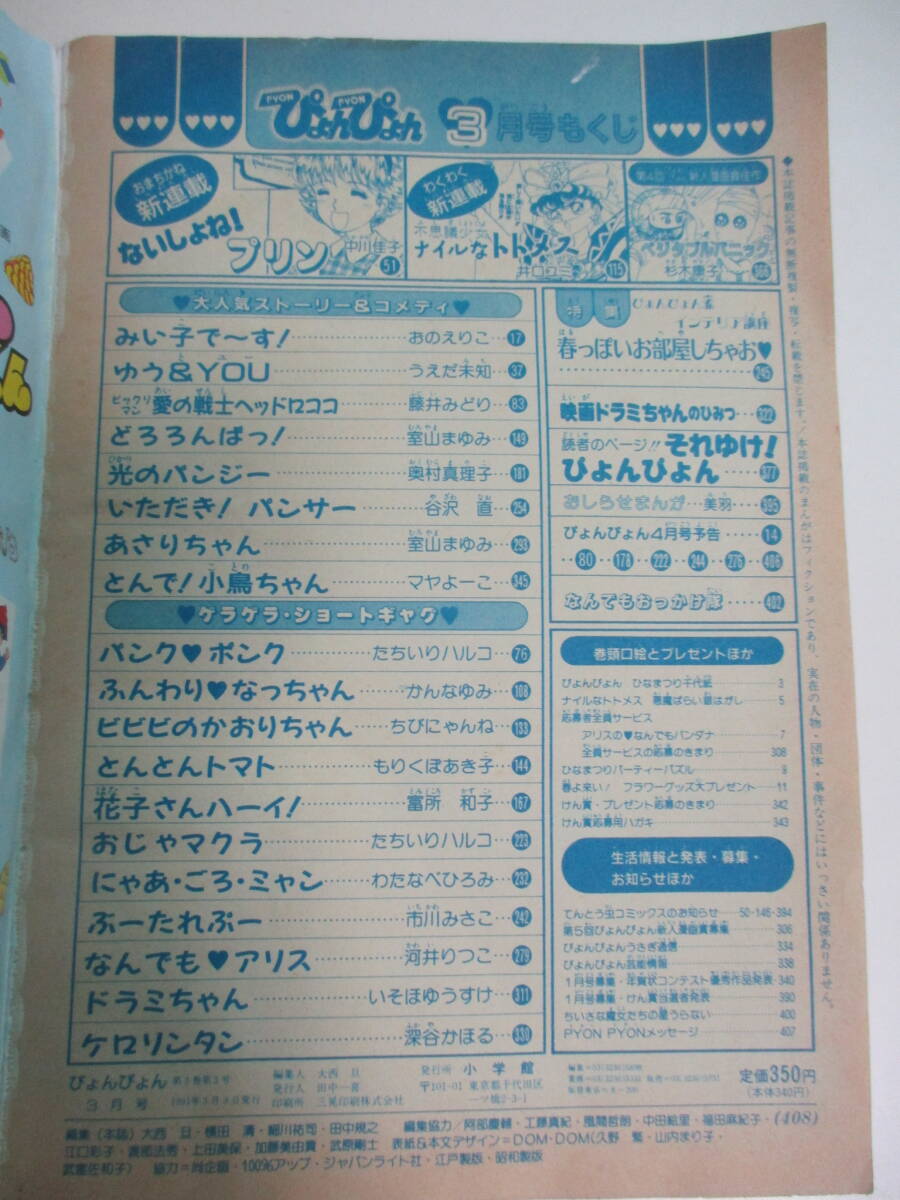 PYON PYON
ぴょんぴょん 3月号もくじ
おまちかね
新連載
ないしょね!
プリン
中川佳子
51
わくわく
新連載
不思議少女
ナイルなトトメス
井口ユミ
115
第4回 新人漫画賞佳作
ベジタブルパニック
杉木康子
366
♥大人気ストーリー&コメディ♥
みい子で〜す! おのえりこ 17
ゆう&YOU うえだ未知 37
ビックリマン 愛の戦士ヘッドロココ 藤井みどり 83
どろろんぱっ! 室山まゆみ 149
光のパンジー 奥村真理子 181
いただき! パンサー 谷沢 直 254
あさりちゃん 室山まゆみ 293
とんで!小鳥ちゃん マヤよーこ 345
♥ゲラゲラ・ショートギャグ♥
パンク♥ポンク たちいりハルコ 76
ふんわり♥なっちゃん かんなゆみ 108
ビビビのかおりちゃん ちびにゃんね 133
とんとんトマト もりくぼあき子 144
花子さんハーイ! 富所 和子 167
おじゃマクラ たちいりハルコ 223
にゃあ・ごろ・ミャン わたなべひろみ 232
ぶーたれぷー 市川みさこ 242
なんでも♥アリス 河井りつこ 279
ドラミちゃん いそほゆうすけ 311
ケロリンタン 深谷かほる 330
特集
インテリア講座
春っぽいお部屋しちゃお♥
245
映画ドラミちゃんのひみつ 322
読者のページ!! それゆけ!
ぴょんぴょん 377
おしらせまんが 美羽 395
ぴょんぴょん4月号予告 14
80 178 222 244 276 406
なんでもおっかけ隊 402
巻頭口絵とプレゼントほか
ぴょんぴょん ひなまつり千代紙 3
ナイルなトトメス 悪魔ばらい銀はがし 5
応募者全員サービス
アリスの♥なんでもバンダナ 7
全員サービスの応募のきまり 308
ひなまつりパーティーパズル 9
春よ来い! フラワーグッズ大プレゼント 11
けん賞・プレゼント応募のきまり 342
けん賞応募用ハガキ 343
生活情報と発表・募集・
お知らせほか
てんとう虫コミックスのお知らせ 50・146・394
第5回ぴょんぴょん新人漫画賞募集 306
ぴょんぴょんうさぎ通信 334
ぴょんぴょん芸能情報 338
1月号募集・年賀状コンテスト優秀作品発表 340
1月号募集・けん賞当選者発表 390
ちいさな魔女たちの星うらない 400
PYON PYONメッセージ 407
◆本誌掲載記事の無断複製・複写・転載を禁じます。/本誌掲載のまんがはフィクションであり、実在の人物・団体・事件などにはいっさい関係ありません。
ぴょんぴょん
3月号
編集人 大西 旦
発行人 田中一喜
印刷所 三晃印刷株式会社
発行所 小学館
〒101-01 東京都千代田区
一ツ橋2-3-1
定価350円
(本体340円)
(408)
編集/(本誌) 大西 旦・横田 清・細川祐司・田中規之 編集協力/阿部慶輔・工藤真紀・風間哲朗・中田絵里・福田麻紀子・
江口彩子・渡部法秀・上田美保・加藤美由貴・武原剛士 表紙&本文デザイン=DOM・DOM(久野 繁・山内まり子・
武富佐和子) 協力=尚企画・100%アップ・ジャパンライト社・江戸製版・昭和製版